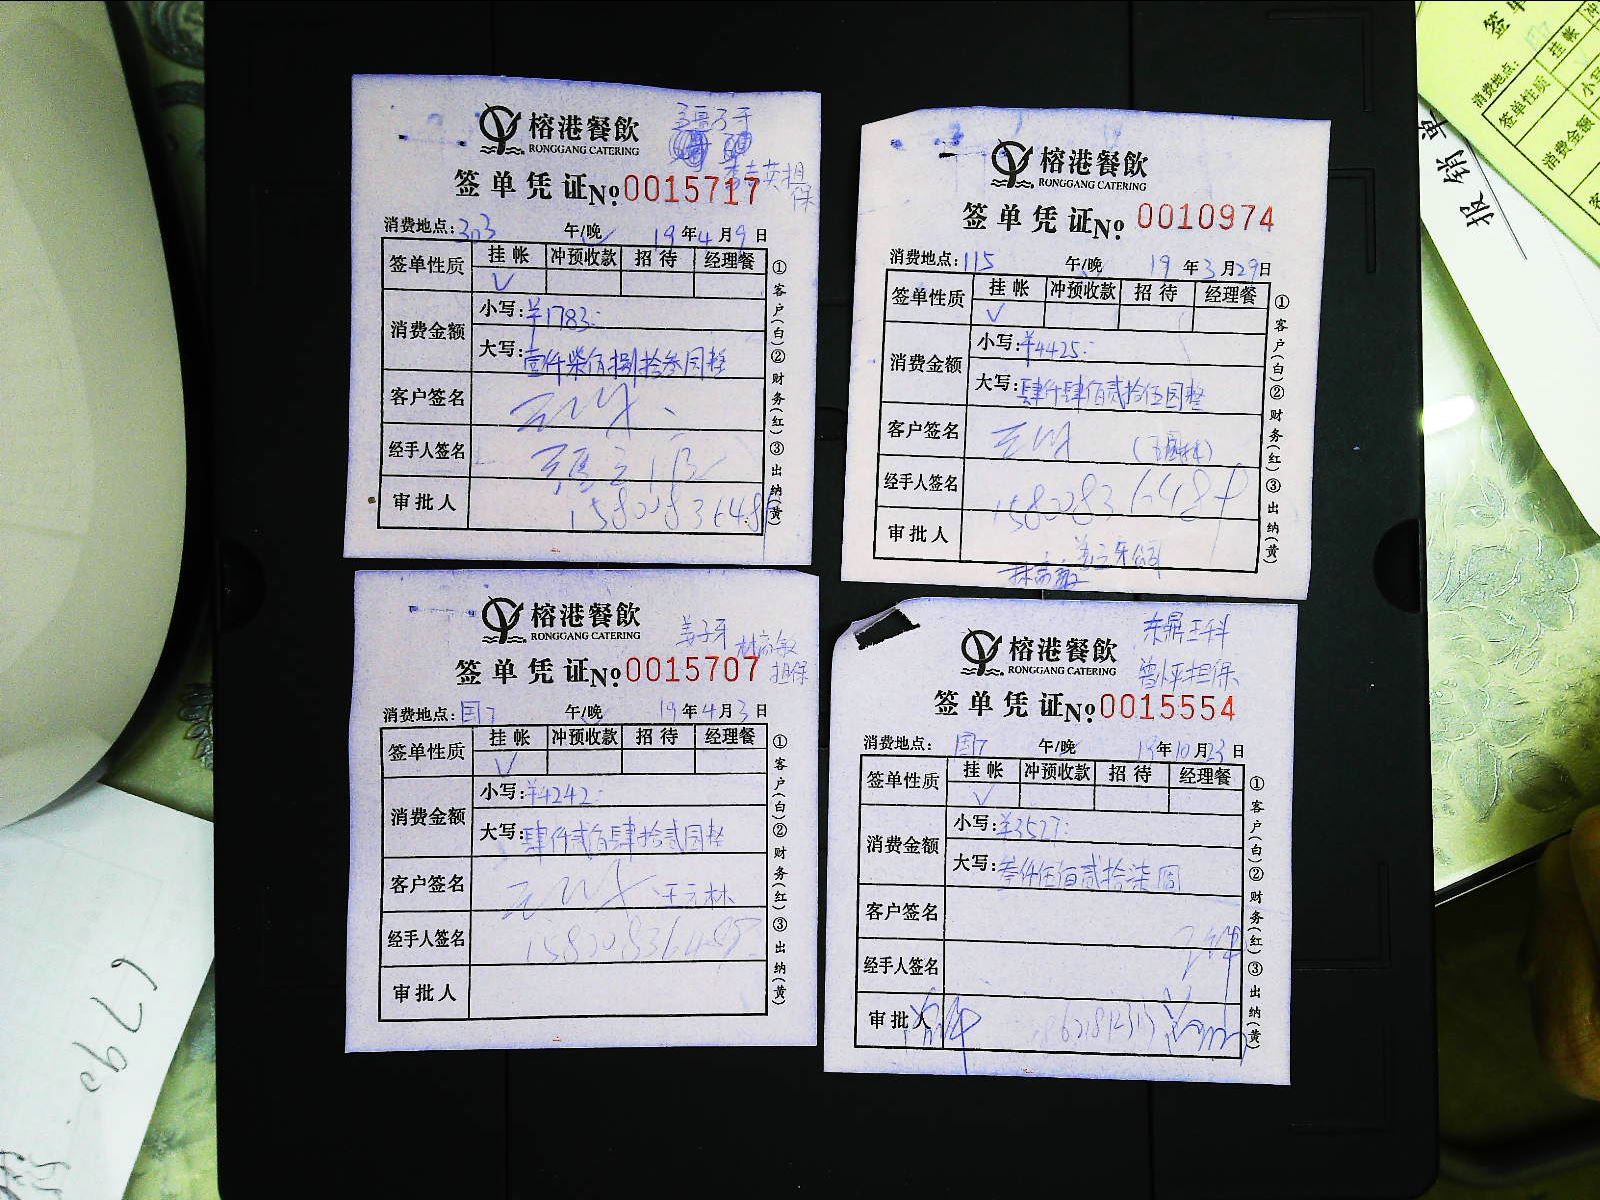 榕港餐飲
RONGGANG CATERING
签单凭证No:0015717
担保
消费地点:303 午/晚 19年4月9日
签单性质 挂帐 冲预收款 招待 经理餐
√
消费金额 小写:¥1783:
大写:壹仟柒佰捌拾叁圆整
客户签名
经手人签名
审批人
1580083648
①客户(白)②财务(红)③出纳(黄)
榕港餐飲
RONGGANG CATERING
签单凭证No:0010974
消费地点:115 午/晚 19年3月29日
签单性质 挂帐 冲预收款 招待 经理餐
√
消费金额 小写:¥4425:
大写:肆仟肆佰贰拾伍圆整
客户签名
经手人签名
审批人
①客户(白)②财务(红)③出纳(黄)
榕港餐飲
RONGGANG CATERING
姜子牙 林高敏
担保
签单凭证No:0015707
消费地点:国7 午/晚 19年4月3日
签单性质 挂帐 冲预收款 招待 经理餐
√
消费金额 小写:¥4242:
大写:肆仟贰佰肆拾贰圆整
客户签名 王元林
经手人签名 15800836488
审批人
①客户(白)②财务(红)③出纳(黄)
东鼎王科
曾怀担保
榕港餐飲
RONGGANG CATERING
签单凭证No:0015554
消费地点:国7 午/晚 19年10月23日
签单性质 挂帐 冲预收款 招待 经理餐
√
消费金额 小写:¥3527:
大写:叁仟伍佰贰拾柒圆
客户签名
经手人签名
审批人
①客户(白)②财务(红)③出纳(黄)
签单
挂帐
消费地点:
签单性质
消费金额
报销单
6790